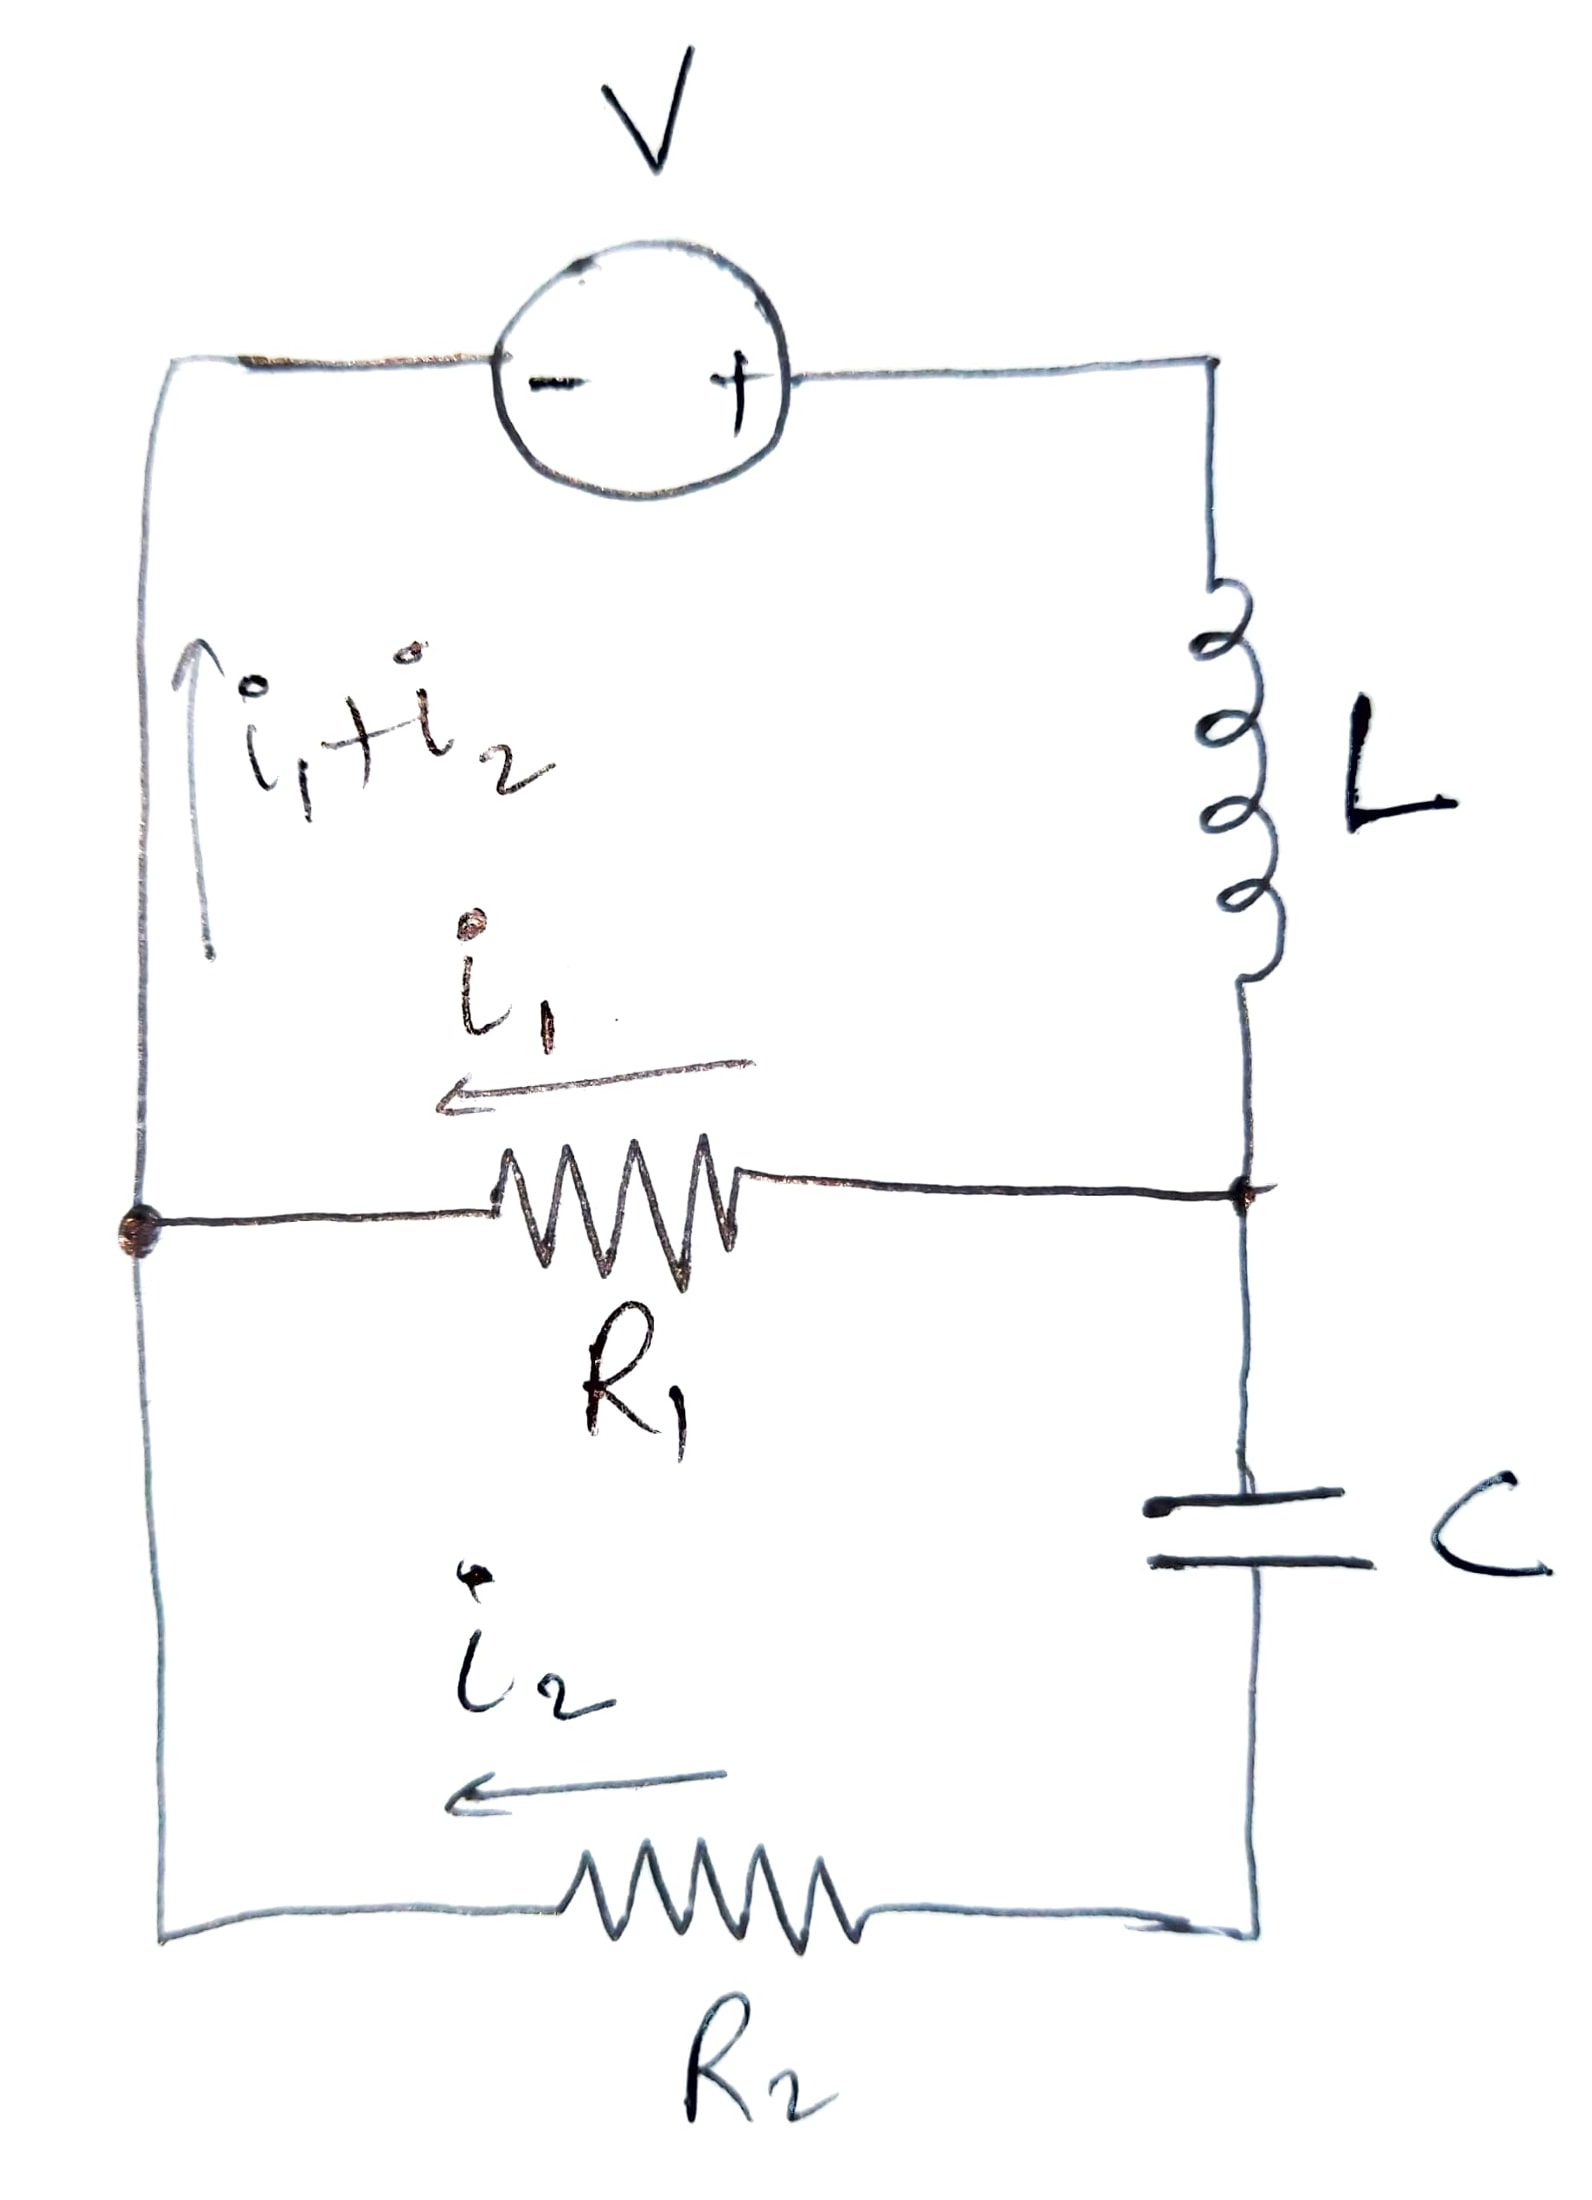 V
- +
i₁+i₂
L
i₁
R₁
C
i₂
R₂